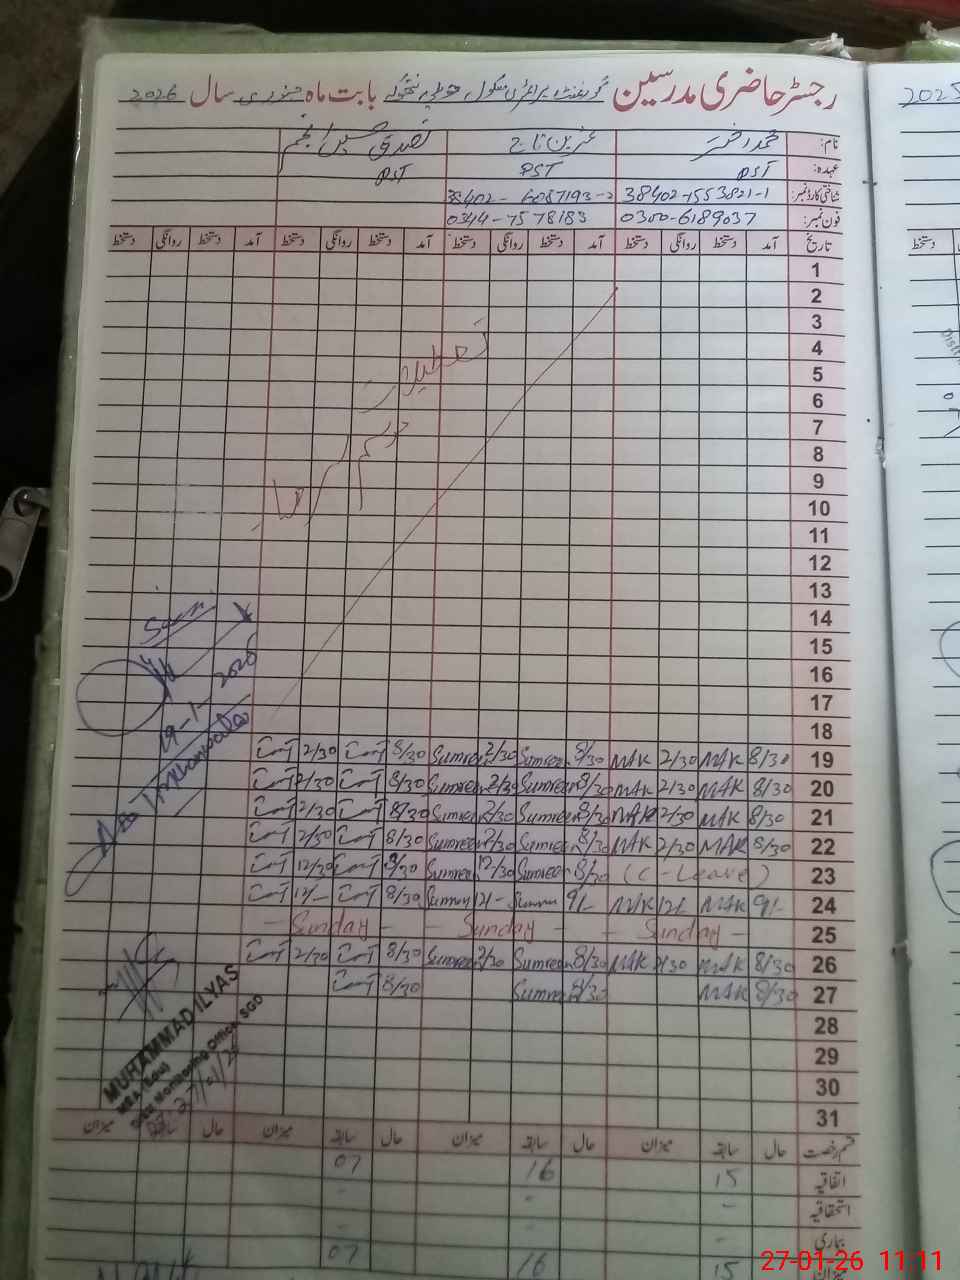 رجسٹر حاضری مدرسین گورنمنٹ پرائمری سکول بابت ماہ جنوری سال 2026
نام: محمد اختر
عہدہ: PST PST PST
شناختی کارڈ نمبر: 38402-1553821-1 38402-6087193-2
فون نمبر: 0300-6189037 0344-7578183
تاریخ آمد دستخط روانگی دستخط آمد دستخط روانگی دستخط آمد دستخط روانگی دستخط آمد دستخط روانگی دستخط
1
2
3
4
5
6
7
8
9
10
11
12
13
14
15
16
17
18
تعطیلات
موسم سرما
19 8/30 MAK 2/30 MAK 8/30 Sumreen 2/30 Sumreen 8/30 2/30
20 8/30 MAK 2/30 MAK 8/30 Sumreen 2/30 Sumreen 8/30 2/30
21 8/30 MAK 2/30 MAK 8/30 Sumreen 2/30 Sumreen 8/30 2/30
22 8/30 MAK 2/30 MAK 8/30 Sumreen 2/30 Sumreen 8/30 2/30
23 (C-Leave) 8/30 Sumreen 12/30 Sumreen 8/30 12/30
24 9/- MAK 12/- MAK 9/- 12/- 8/30 12/-
25 - Sunday - - Sunday - - Sunday -
26 8/30 MAK 2/30 MAK 8/30 Sumreen 2/30 Sumreen 8/30 2/30
27 8/30 MAK 8/30 Sumreen 8/30
28
29
30
31
19-1-2026
MUHAMMAD ILYAS
Monitoring Officer SGD
27/01/26
قسم رخصت حال سابقہ میزان حال سابقہ میزان حال سابقہ میزان حال سابقہ میزان
اتفاقیہ 15 16 07
استحقاقیہ - - -
بیماری - - -
میزان 15 16 07
2025
27-01-26 11:11